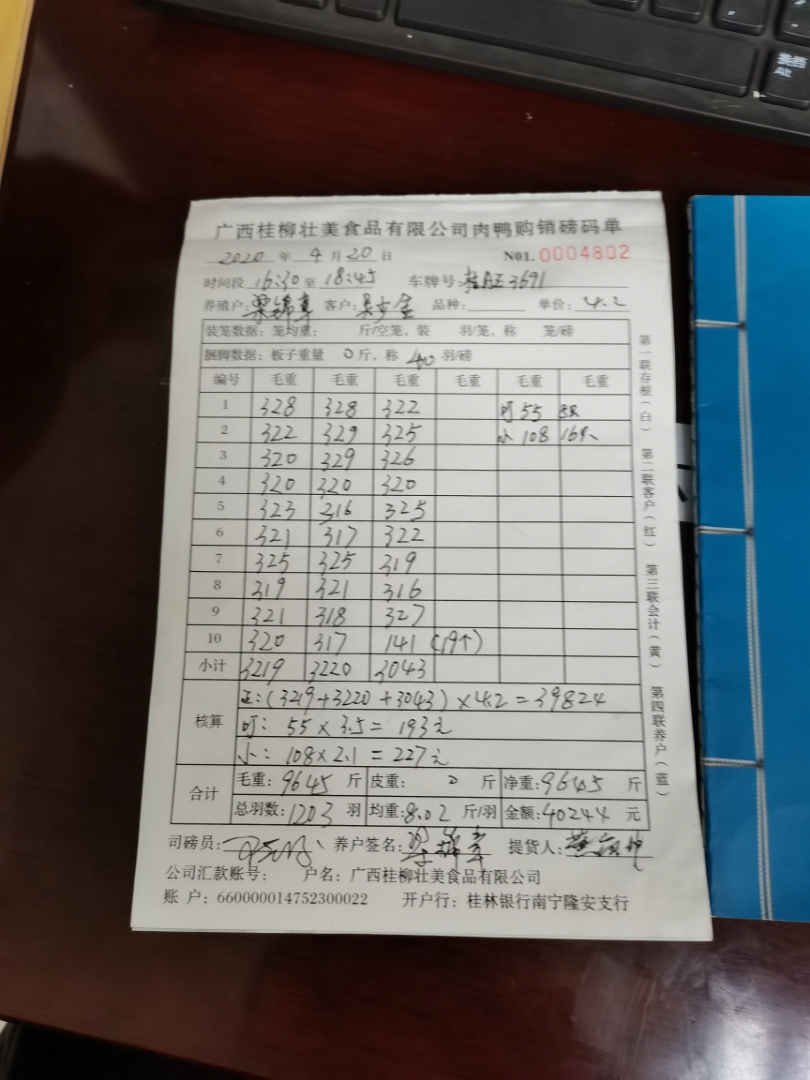 换档
Alt
广西桂柳壮美食品有限公司肉鸭购销磅码单
2020 年 4 月 20 日 N01. 0004802
时间段 16:30 至 18:45 车牌号: 3691
养殖户: 梁锦章 客户: 品种: 单价: 4.2
装笼数据: 笼均重: 斤/空笼、装 羽/笼、称 笼/磅
捆脚数据: 板子重量 0 斤、称 40 羽/磅
编号 毛重 毛重 毛重 毛重 毛重 毛重
1 328 328 322 可 55
2 322 329 325 小 108 16只
3 320 329 326
4 320 320 320
5 323 316 325
6 321 317 322
7 325 325 319
8 319 321 316
9 321 318 327
10 320 317 141 (19个)
小计 3219 3220 3043
核算 正: (3219+3220+3043)×4.2=39824
可: 55×3.5=193元
小: 108×2.1=227元
合计 毛重: 9645 斤 皮重: 0 斤 净重: 9645 斤
总羽数: 1203 羽 均重: 8.02 斤/羽 金额: 40244 元
司磅员: 养户签名: 梁锦章 提货人:
公司汇款账号: 户名: 广西桂柳壮美食品有限公司
账 户: 660000014752300022 开户行: 桂林银行南宁隆安支行
第一联存根(白) 第二联客户(红) 第三联会计(黄) 第四联养户(蓝)